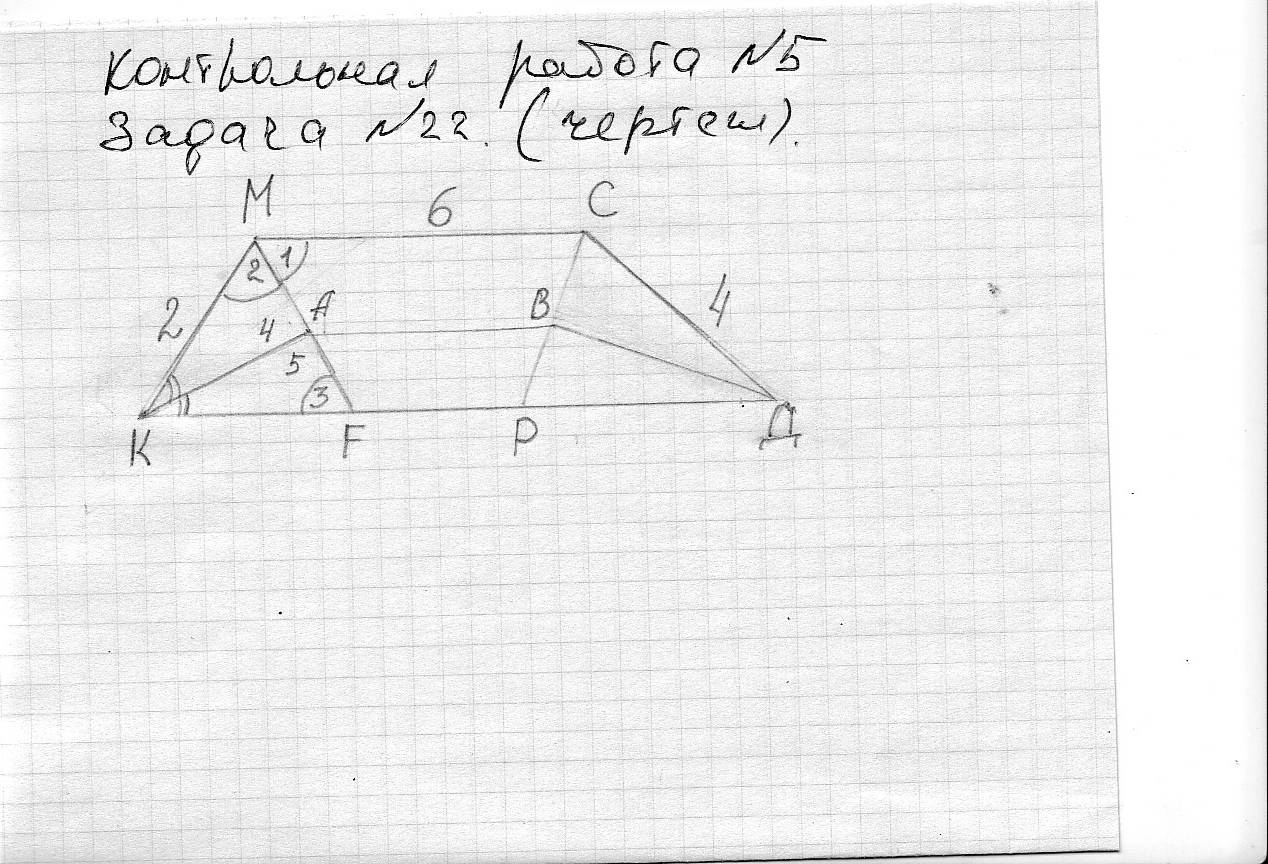 Контрольная работа №5
Задача №22. (чертеж).
М 6 С
2 1
2 А В 4
4
5
3
К F Р Д